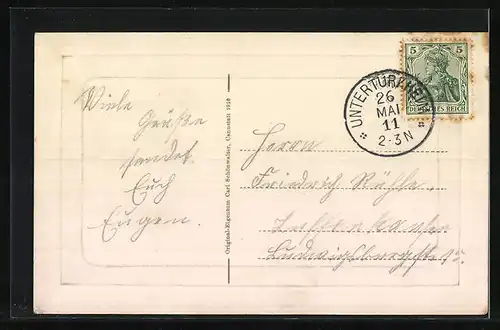 Viele
Grüße
sendet
Euch
Eugen.
Original-Eigentum Carl Schönwalter, Cannstatt 1910
Herrn
Friedrich Rühle,
Zuffenhausen
Ludwigsburgstr.
5 5
DEUTSCHES REICH
UNTERTÜRKHEIM
26
MAI
11
2-3N